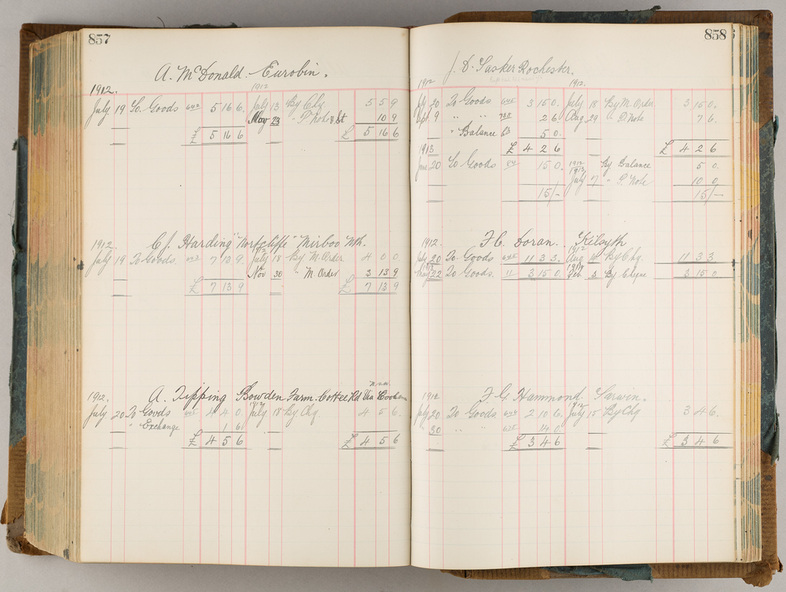 857
A. McDonald Eurobin.
1912.
1912
July 19 To Goods 5 16 6. July 13 By Chq 5 5 9
Nov 23 " P. Note & St 10 9
£ 5 16 6 £ 5 16 6
1912. C. J. Harding "Northcliffe" Mirboo Nth.
July 19 To Goods 7 13 9. July 18 By M. Order 4 0 0
Nov 30 " M. Order 3 13 9
£ 7 13 9 £ 7 13 9
1912. A. Tipping Bowden Farm. Coffee Rd Via
N.S.W.
July 20 To Goods 4 4 0 July 18 By Chq. 4 5 6.
" Exchange 1 6
£ 4 5 6 £ 4 5 6
858
J. D. Tasker Rochester.
1912 1912.
July 20 To Goods 3 15 0. July 18 By M. Order 3 15 0.
9 " " 2 6 Aug 29 " P. Note 7 6.
" Balance 5 0.
1913 £ 4 2 6 £ 4 2 6
20 To Goods 15 0. By Balance 5 0.
July 7 " P. Note 10 0
15/- 15/-
1912. F. C. Doran. Kilsyth
1912
July 20 To Goods 11 3 3. Aug By Chq. 11 3 3
22 To Goods. 3 15 0 Feb 3 By Cheque 3 15 0
1912 F. G. Hammond
July 20 To Goods 2 10 6. July 15 By Chq 3 4 6.
30 " " 14 0
£ 3 4 6 £ 3 4 6